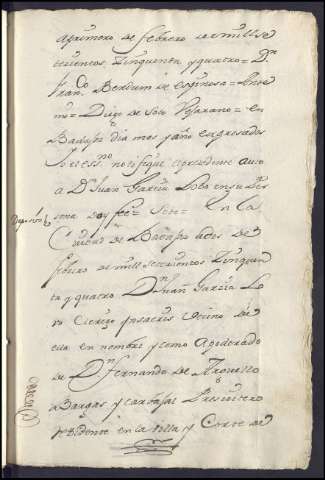 a primero de febrero de mill se
tecientos Zinquenta y quatro = Dn
fran.co Berdum de espinosa = Ante
mi = Diego de Soto Vejarano = en
Badajoz dia mes y año expresados
Yo el ess.no notifique el precedente auto
a Dn Juan Garcia Lobo en su Per
sona doy fee = Soto = En la
Ciudad de Badajoz a tres de
febrero de mill setecientos Zinquen
ta y quatro Dn Juan Garcia Lo
vo Clerigo Ynsacris vecino de
ella en nombre y como apoderado
de Dn fernando de Arguello
Bargas y carbajal Presuitero
residente en la villa y Corte de